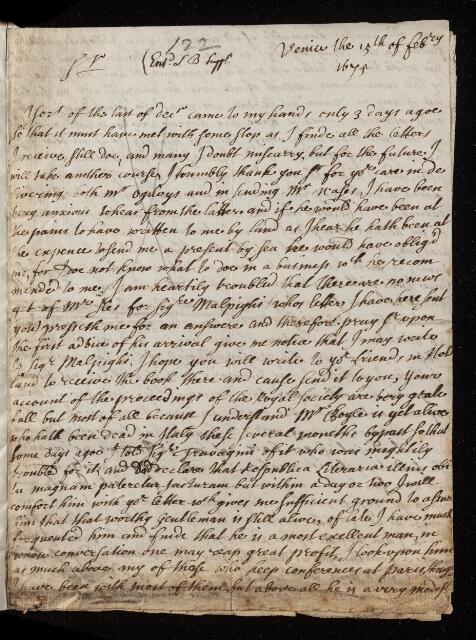 122
Sr (Entd L B suppl.
Venice the 15th of febry
1675
Yors of the last of decr came to my hands only 3 days agoe
so that it must have met with some stop as I finde all the letters
I receive still doe, and many I doubt miscarry, but for the future I
will take another course, I humbly thank you Sr for yor care in de
livering both Mr Ogilbys and in sending Mr I have been
very anxious to hear from the latter and if he would have been at
the pains to have written to me by land as I hear he hath been at
the expence to send me a present by sea he would have oblig'd
me, for I doe not know what to doe in a business wch he recom
mended to me. I am heartily troubled that there are no news
yet of Mr for Sigre Malpighi whos letter I have here sent
you presseth me for an answere and therefore pray Sr upon
the first advice of his arrival give me notice that I may write
to Sigr Malpighi, I hope you will write to yor friend in Hol
land to receive the book there and cause send it to you, Your
account of the proceedings of the Royal Society are very grate
full but most of all because I understand Mr Boyle is yet alive
who hath been dead in Italy these several months bypast so that
some days agoe I told Sigr Travagini of it who was mightily
troubled for it, and did declare that Respublica Literaria illius obi
tu magnam pateretur jacturam but within a day or two I will
comfort him with yor letter wch gives me sufficient ground to assure
him that that worthy Gentleman is still alive, of late I have much
frequented him and finde that he is a most excellent man, in
whose conversation one may reap great profit, I look upon him
as much above any of those who keep conferences at paris though
I have been with most of them, but above all he is a very modest